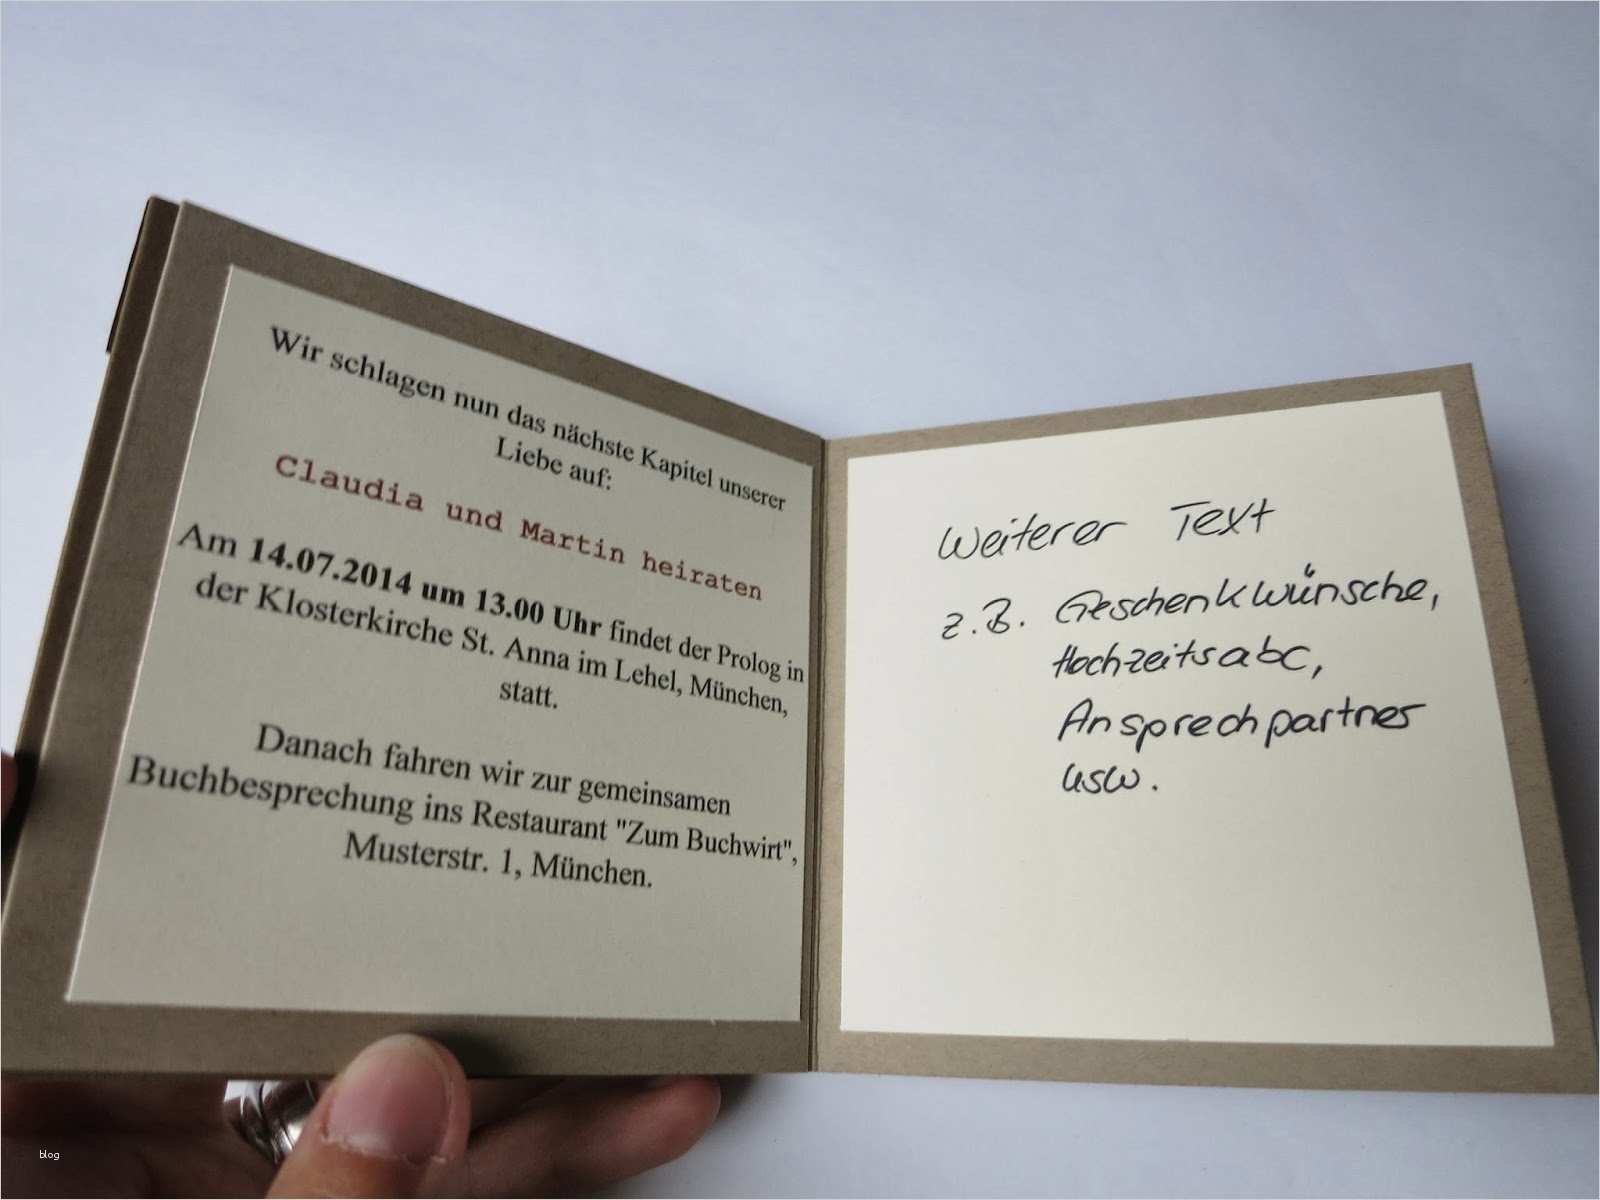 Wir schlagen nun das nächste Kapitel unserer
Liebe auf:
Claudia und Martin heiraten
Am 14.07.2014 um 13.00 Uhr findet der Prolog in
der Klosterkirche St. Anna im Lehel, München,
statt.
Danach fahren wir zur gemeinsamen
Buchbesprechung ins Restaurant "Zum Buchwirt",
Musterstr. 1, München.
Weiterer Text
z.B. Geschenkwünsche,
Hochzeitsabc,
Ansprechpartner
usw.
blog